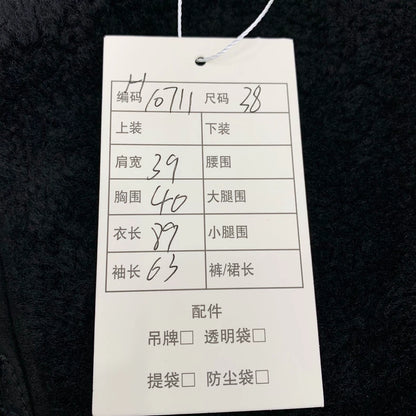 编码 H10711 尺码 38
上装 下装
肩宽 39 腰围
胸围 40 大腿围
衣长 89 小腿围
袖长 63 裤/裙长
配件
吊牌□ 透明袋□
提袋□ 防尘袋□